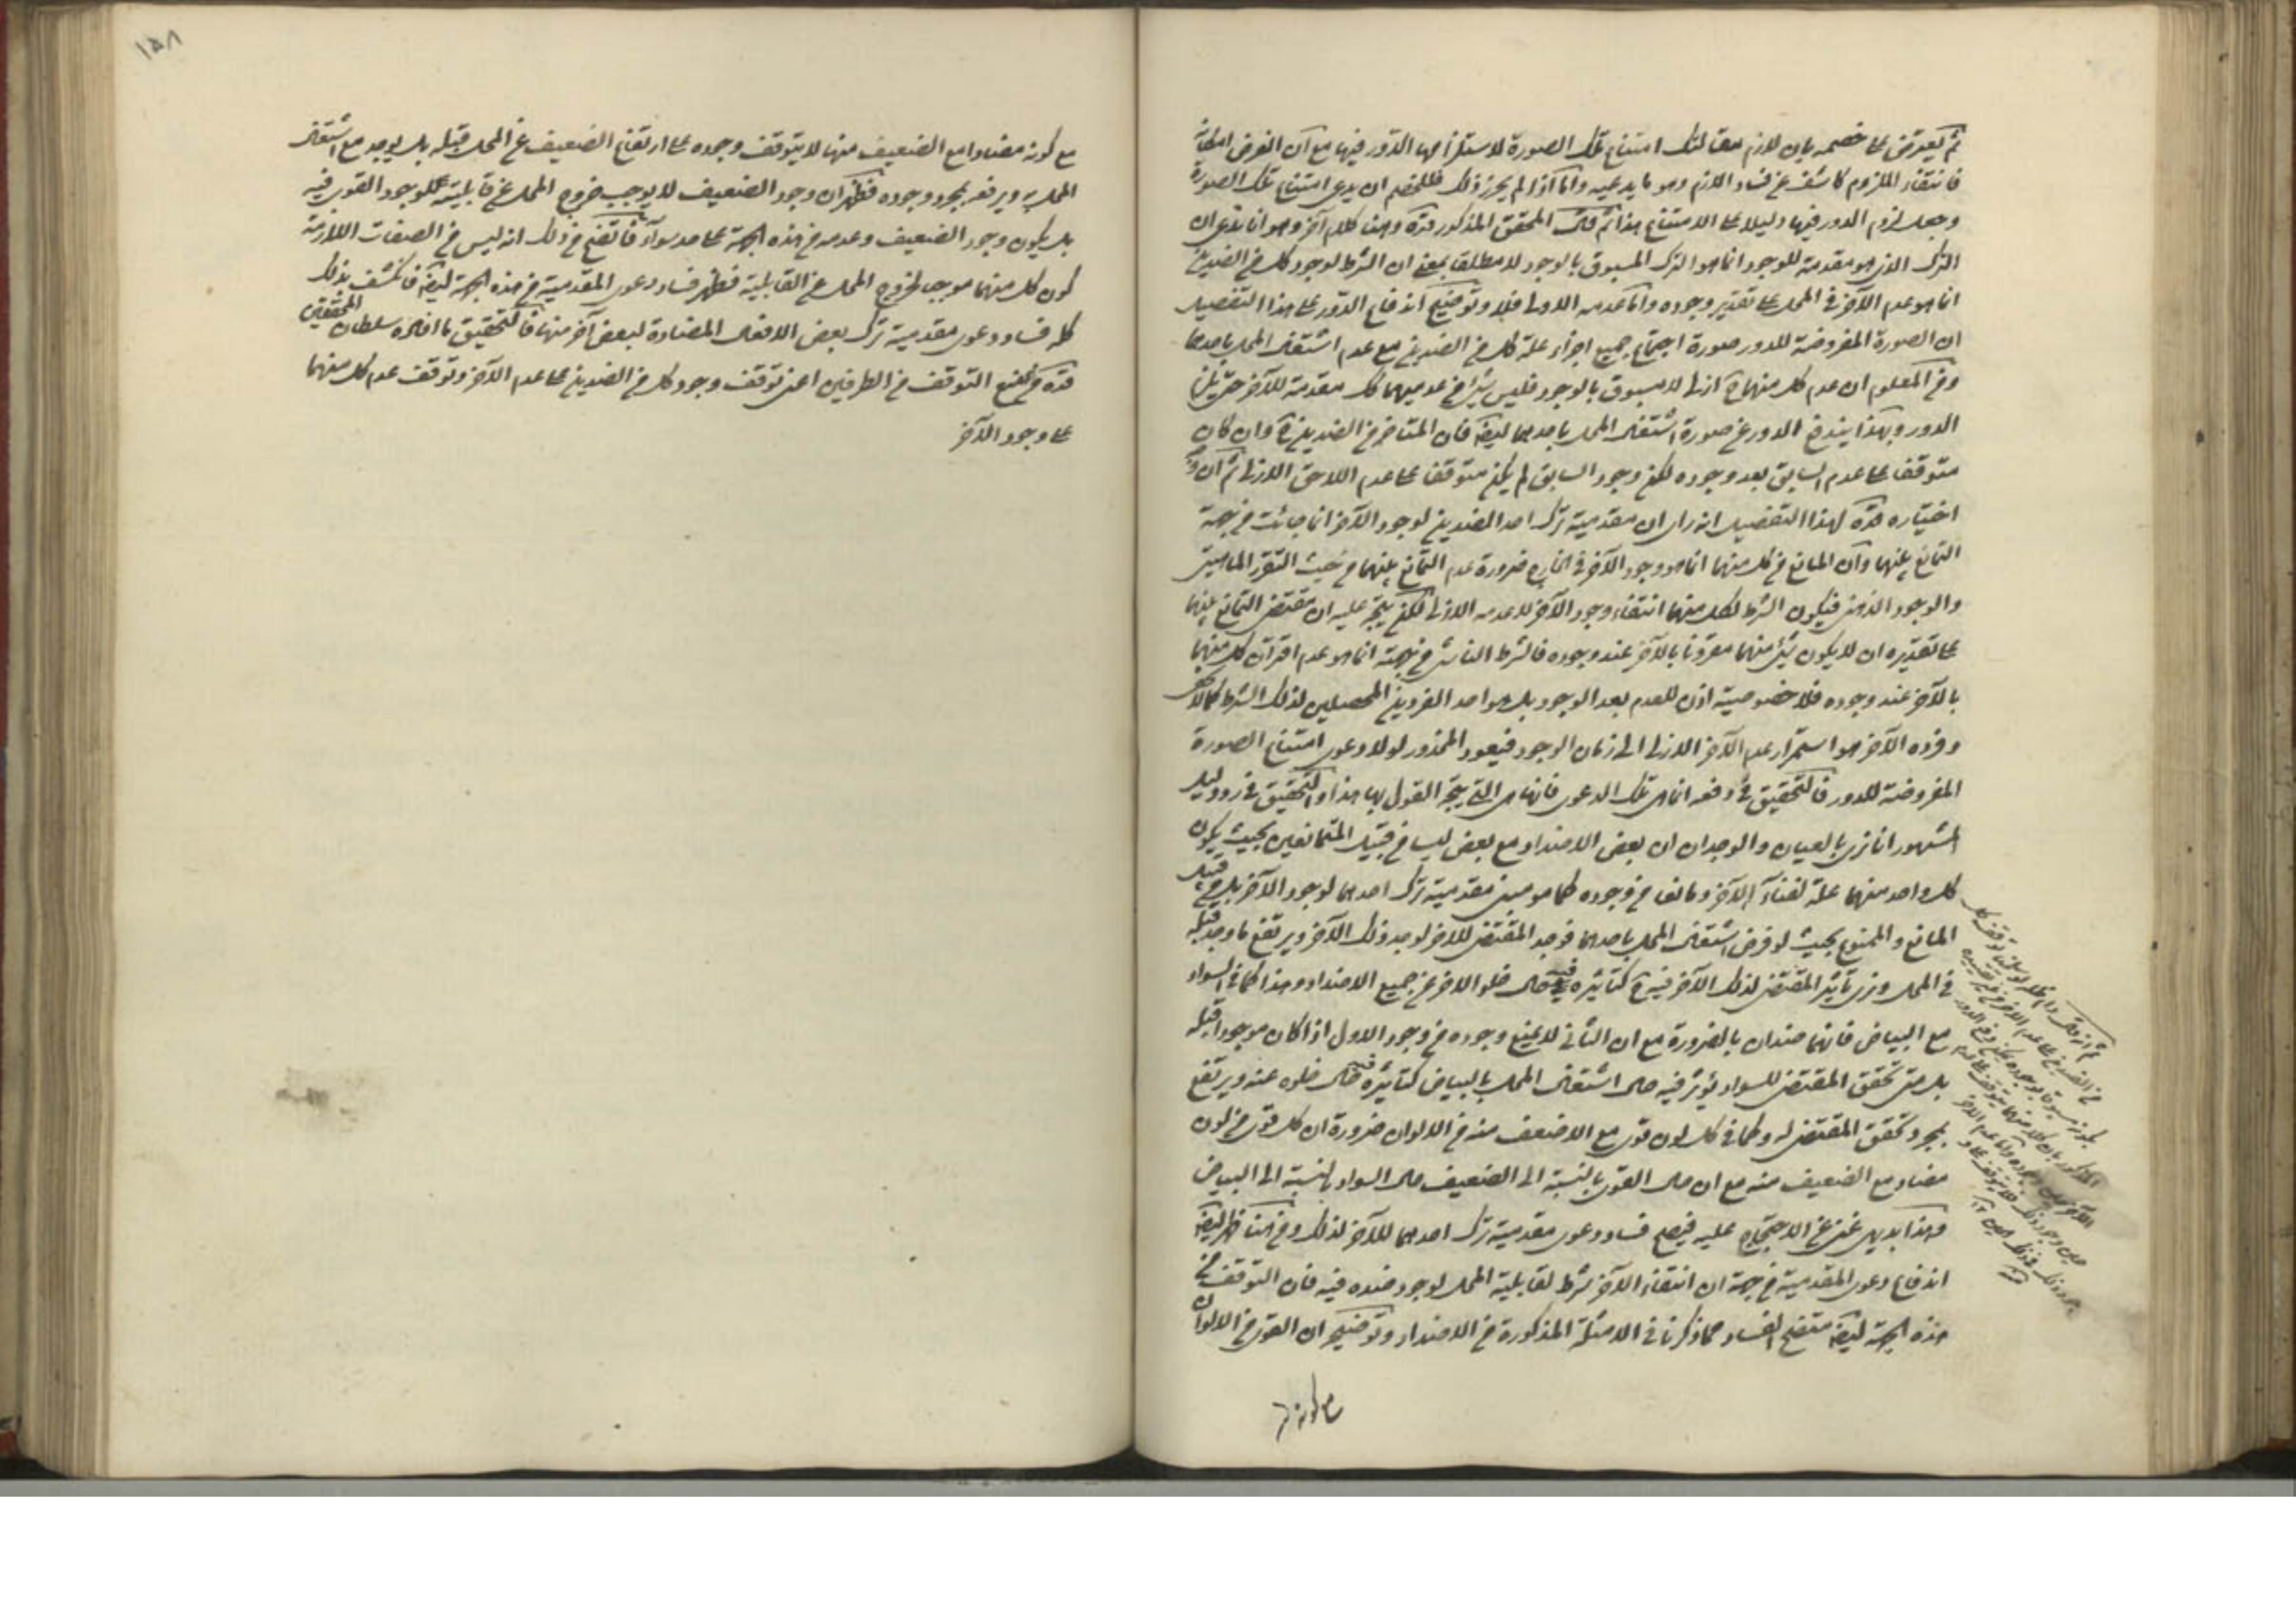 ثم يعترض على خصمه بان لازم مقالتك امتناع تلك الصورة لاستلزامها الدور فيها مع ان الفرض امكانه
فانتفاء الملزوم كاشف عن فساد اللازم وهو ما يدعيه واما اذا لم يحرز ذلك فللخصم ان يدعى امتناع تلك الصورة
وجعل لزوم الدور فيها دليلا على الامتناع هذا ثم قال المحقق المذكور قده وهنا كلام آخر وهو انا ندعى ان
الترك الذى هو مقدمة للوجود انما هو الترك المسبوق بالوجود لا مطلقا بمعنى ان الشرط لوجود كل من الضدين
انما هو عدم الآخر فى المحل على تقدير وجوده واما عدمه الازلى فلا وتوضيح اندفاع الدور على هذا التفصيل
ان الصورة المفروضة للدور صورة اجتماع جميع اجزاء علة كل من الضدين مع عدم اشتغال المحل باحدهما
ومن المعلوم ان عدم كل منهما ح ازلى لا مسبوق بالوجود فليس شئ من عدميهما ح مقدمة للآخر حتى يلزم
الدور وبهذا يندفع الدور عن صورة اشتغال المحل باحدهما ايضا فان المتاخر من الضدين ح وان كان
متوقفا على عدم السابق بعد وجوده لكن وجود السابق لم يكن متوقفا على عدم اللاحق الازلى ثم ان
اختياره قده لهذا التفصيل انه راى ان مقدمية ترك احد الضدين لوجود الآخر انما جائت من جهة
التمانع بينهما وان المانع من كل منهما انما هو وجود الآخر فى الخارج ضرورة عدم التمانع بينهما من حيث التقرر الماهيتى
والوجود الذهنى فيكون الشرط لكل منهما انتفاء وجود الآخر لا عدمه الازلى لكن يتجه عليه ان مقتضى التمانع بينهما
على تقديره ان لا يكون شئ منهما مقرونا بالآخر عند وجوده فالشرط الناشى من جهته انما هو عدم اقتران كل منهما
بالآخر عند وجوده فلا خصوصية اذن للعدم بعد الوجود بل هو احد الفردين المحصلين لذلك الشرط كما لا يخفى
وفرده الآخر هو استمرار عدم الآخر الازلى الى زمان الوجود فيعود المحذور لولا دعوى امتناع الصورة
المفروضة للدور فالتحقيق فى دفعه انما هى تلك الدعوى فانها هى التى يتجه القول بها هذا والتحقيق فى رد دليل
المشهور انا نرى بالعيان والوجدان ان بعض الاضداد مع بعض ليسا من قبيل المتمانعين بحيث يكون
كل واحد منهما علة لفناء الآخر ومانعا من وجوده كما هو مبنى مقدمية ترك احدهما لوجود الآخر بل من قبيل
المانع والممنوع بحيث لو فرض اشتغال المحل باحدهما فوجد المقتضى للآخر لوجد ذلك الآخر ويرتفع ما وجد قبله
فى المحل ونرى تأثير المقتضى لذلك الآخر فيه ح كتأثيره فيه حال خلو الآخر عن جميع الاضداد وهذا كما فى السواد
مع البياض فانهما ضدان بالضرورة مع ان الثانى لا يمنع وجوده من وجود الاول اذا كان موجودا قبله
بل متى تحقق المقتضى للسواد يؤثر فيه حال اشتغال المحل بالبياض كتأثيره فيه حال خلوه عنه ويرتفع
بمجرد تحقق المقتضى له وكما فى كل لون قوى مع الاضعف منه من الالوان ضرورة ان كل قوى من لون
مضاد مع الضعيف منه مع ان حال القوى بالنسبة الى الضعيف حال السواد بالنسبة الى البياض
وهذا بديهى غنى عن الاحتجاج عليه فيتضح فساد دعوى مقدمية ترك احدهما للآخر لذلك ومن هنا ظهر ايضا
اندفاع دعوى المقدمية من جهة ان انتفاء الآخر شرط لقابلية المحل لوجود ضده فيه فان التوقف من
هذه الجهة ايضا متضح الفساد مما ذكرنا فى الامثلة المذكورة من الاضداد وتوضيحه ان القوى من الالوان
مع كونه
مع كونه مضادا مع الضعيف منها لا يتوقف وجوده على ارتفاع الضعيف عن المحل قبله بل يوجد مع اشتغال
المحل به ويرفعه بمجرد وجوده فظهر ان وجود الضعيف لا يوجب خروج المحل عن قابليته لوجود القوى فيه
بل يكون وجود الضعيف وعدمه من هذه الجهة على حد سواء فاتضح من ذلك انه ليس من الصفات اللازمة
كون كل منهما موجبا لخروج المحل عن القابلية فظهر فساد دعوى المقدمية من هذه الجهة ايضا فانكشف بذلك
كله فساد دعوى مقدمية ترك بعض الافعال المضادة لبعض آخر منها فالتحقيق ما افاده سلطان المحققين
قده من منع التوقف من الطرفين اعنى توقف وجود كل من الضدين على عدم الآخر وتوقف عدم كل منهما
على وجود الآخر